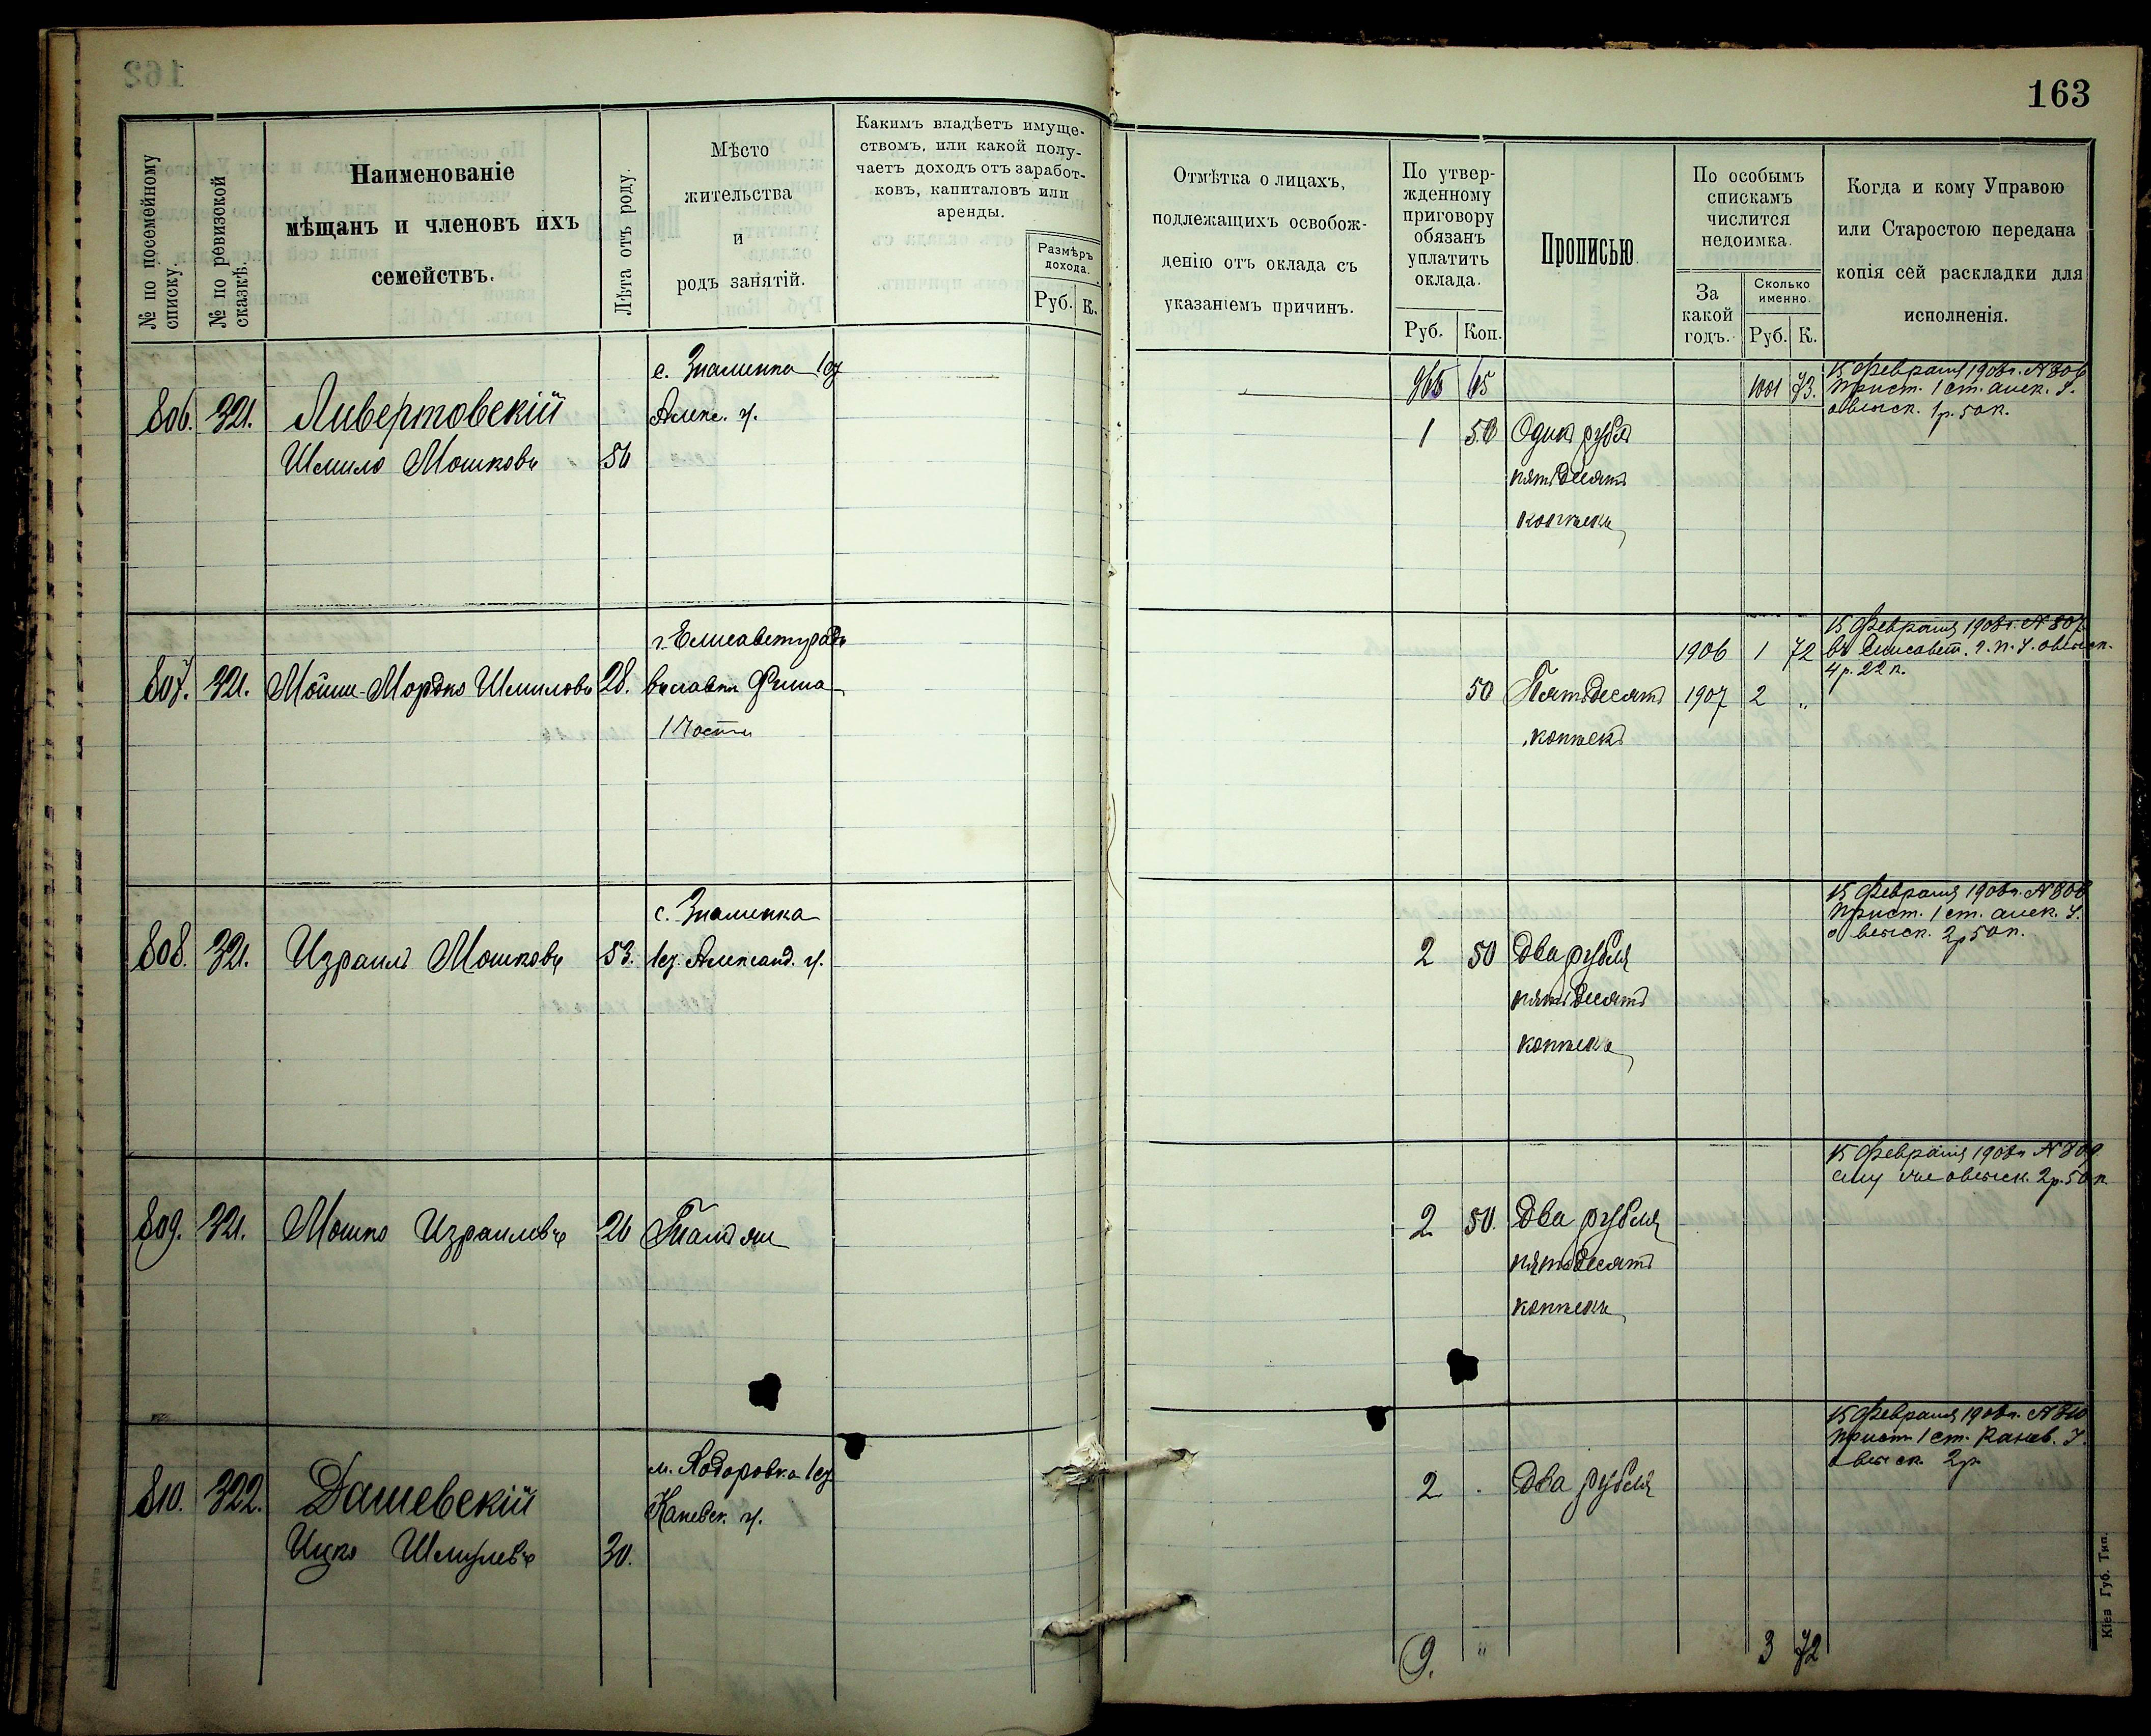 163
№ по посемейному списку.
№ по ревизской сказкѣ.
Наименованіе
мѣщанъ и членовъ ихъ
семействъ.
Лѣта отъ роду.
Мѣсто
жительства
и
родъ занятій.
Какимъ владѣетъ имуще-
ствомъ, или какой полу-
чаетъ доходъ отъ заработ-
ковъ, капиталовъ или
аренды.
Размѣръ
дохода.
Руб. К.
Отмѣтка о лицахъ,
подлежащихъ освобож-
денію отъ оклада съ
указаніемъ причинъ.
По утвер-
жденному
приговору
обязанъ
уплатить
оклада.
Руб. Коп.
Прописью.
По особымъ
спискамъ
числится
недоимка.
За
какой
годъ.
Сколько
именно.
Руб. К.
Когда и кому Управою
или Старостою передана
копія сей раскладки для
исполненія.
965 65
1001 73.
806. 321. Ливертовскій
Шмило Мошковъ 56
с. Знаменка
Алекс. у.
1 50 Одинъ рубль
пятьдесятъ
копѣекъ
15 Февраля 1908 г. № 806
Прист. 1 ст. алек. у.
о взыск. 1 р. 50 к.
807. 321. Мойше-Мордко Шмиловъ 28.
г. Елисаветградъ
50 Пятьдесятъ
копѣекъ
1906 1 72
1907 2 "
15 Февраля 1908 г. № 807
въ Елисавет. г. п. у. о взыск.
4 р. 22 к.
808. 321. Израиль Мошковъ 53.
с. Знаменка
Александ. у.
2 50 Два рубля
пятьдесятъ
копѣекъ
15 Февраля 1908 г. № 808
Прист. 1 ст. алек. у.
о взыск. 2 р 50 к.
809. 321. Мошко Израилевъ 26 Тамъ же
2 50. Два рубля
пятьдесятъ
копѣекъ
15 Февраля 1908 г № 809
ему же о взыск. 2 р. 50 к.
810. 322. Дашевскій
Ицко Шмулевъ 30.
Каневск. у.
2 . Два рубля
15 Февраля 1908 г. № 810
Прист. 1 ст. Канев. у.
о взыск. 2 р.
9. " 3 72
Кіев Губ. Тип.